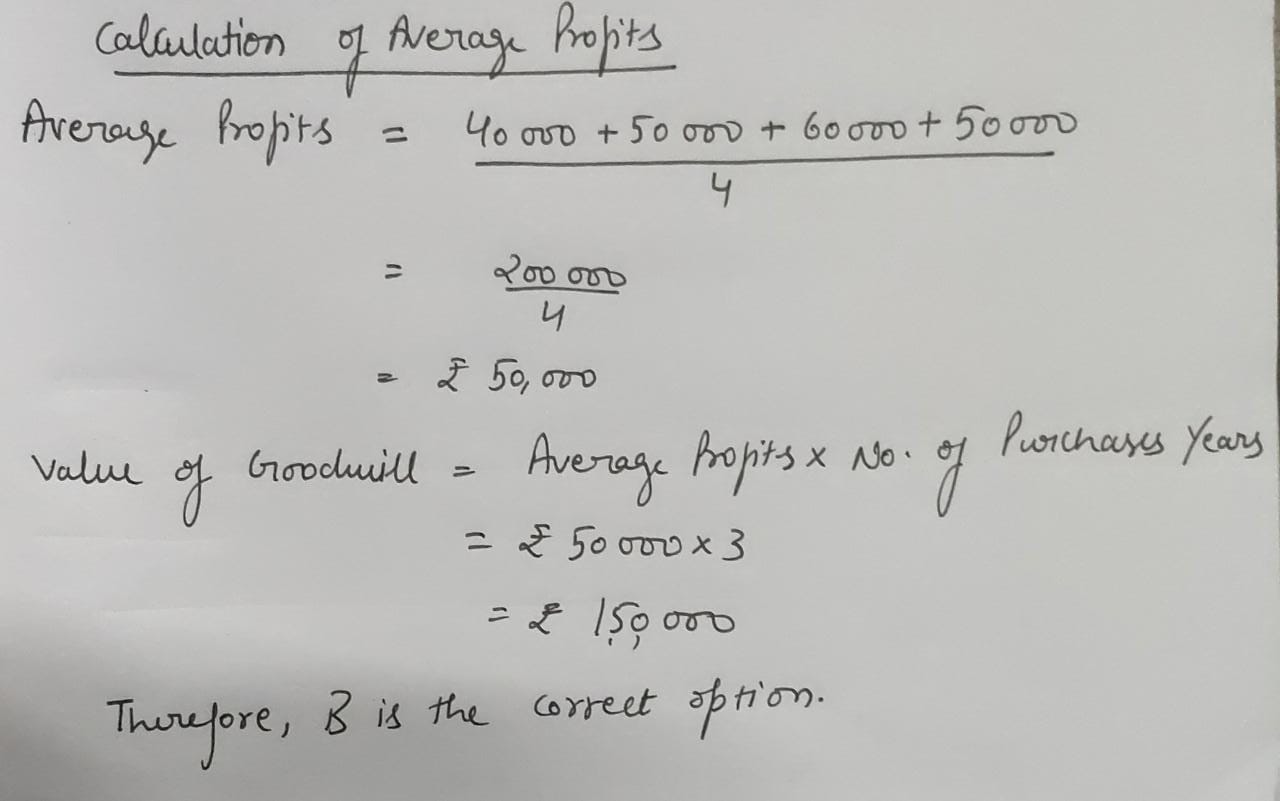 Calculation of Average Profits
Average Profits = 40 000 + 50 000 + 60 000 + 50 000
4
= 200 000
4
= ₹ 50,000
Value of Goodwill = Average Profits x No. of Purchases Years
= ₹ 50 000 x 3
= ₹ 1,50,000
Therefore, B is the correct option.